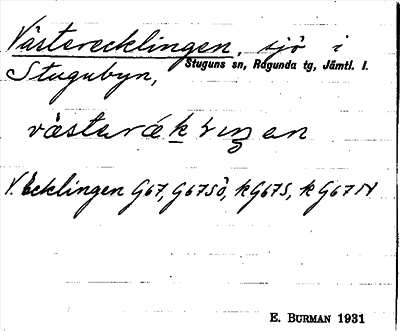 Västerecklingen, sjö i
Stuguns sn, Ragunda tg, Jämtl. l.
Stugubyn,
V. Ecklingen G67, G67SÖ, kG67S, kG67N
E. BURMAN 1931